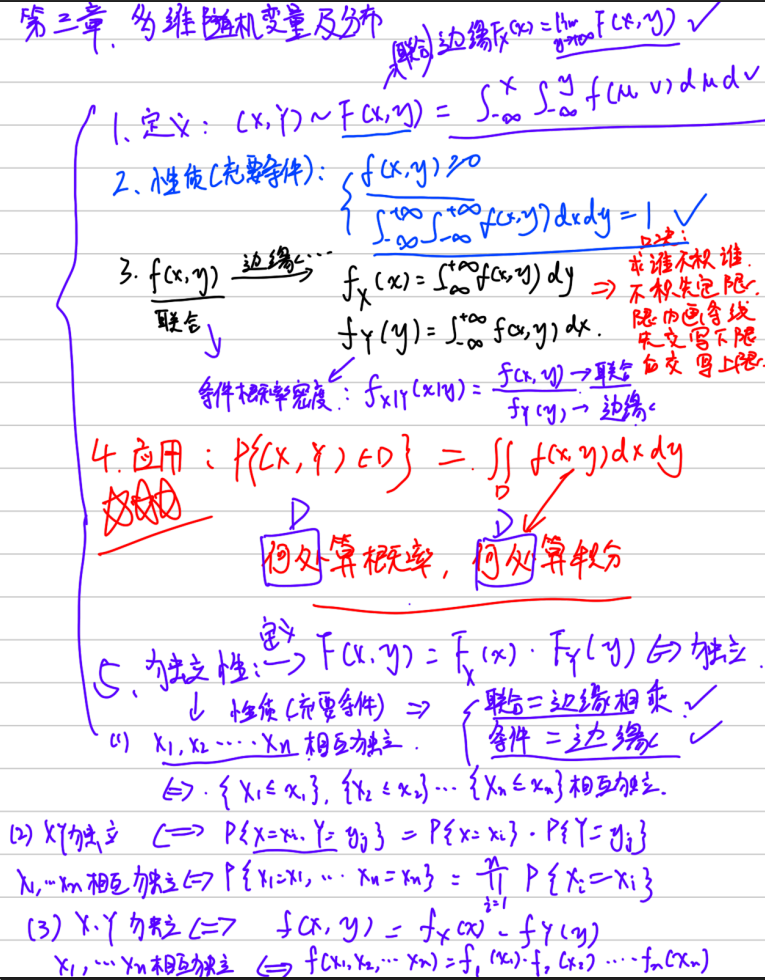 第三章、多维随机变量及分布
(联合) 边缘F_X(x) = lim_{y→+∞} F(x,y) ✓
1、定义: (X,Y) ~ F(x,y) = ∫_{-∞}^{x} ∫_{-∞}^{y} f(μ,v) dμ dv
2、性质(充要条件): { f(x,y) ≥ 0
∫_{-∞}^{+∞} ∫_{-∞}^{+∞} f(x,y) dx dy = 1 ✓
3. f(x,y) 边缘… → f_X(x) = ∫_{-∞}^{+∞} f(x,y) dy ⇒
联合
f_Y(y) = ∫_{-∞}^{+∞} f(x,y) dx.
口决:
求谁不积谁.
不积先定限.
限内画条线
先交写下限
后交写上限.
条件概率密度: f_{X|Y}(x|y) = f(x,y) → 联合 / f_Y(y) → 边缘
4. 应用: P{(X,Y)∈D} = ∬_D f(x,y) dx dy
☆☆☆
D D
何处算概率, 何处算积分
5、独立性: 定义 → F(x,y) = F_X(x) · F_Y(y) ⇔ 独立.
↓ 性质(充要条件) ⇒ { 联合=边缘相乘 ✓
条件=边缘 ✓
(1) X₁, X₂ ····· Xn 相互独立.
⇔ {X₁≤x₁}, {X₂≤x₂} ··· {Xn≤xn} 相互独立.
(2) XY独立 ⇔ P{X=xi, Y=yj} = P{X=xi} · P{Y=yj}
X₁, ··· Xn 相互独立 ⇔ P{X₁=x₁, ··· Xn=xn} = ∏_{i=1}^{n} P{Xi=xi}
(3) X·Y 独立 ⇔ f(x,y) = f_X(x) · f_Y(y)
X₁, ··· Xn 相互独立 ⇔ f(x₁,x₂, ··· xn) = f₁(x₁)·f₂(x₂) ···· fn(xn)